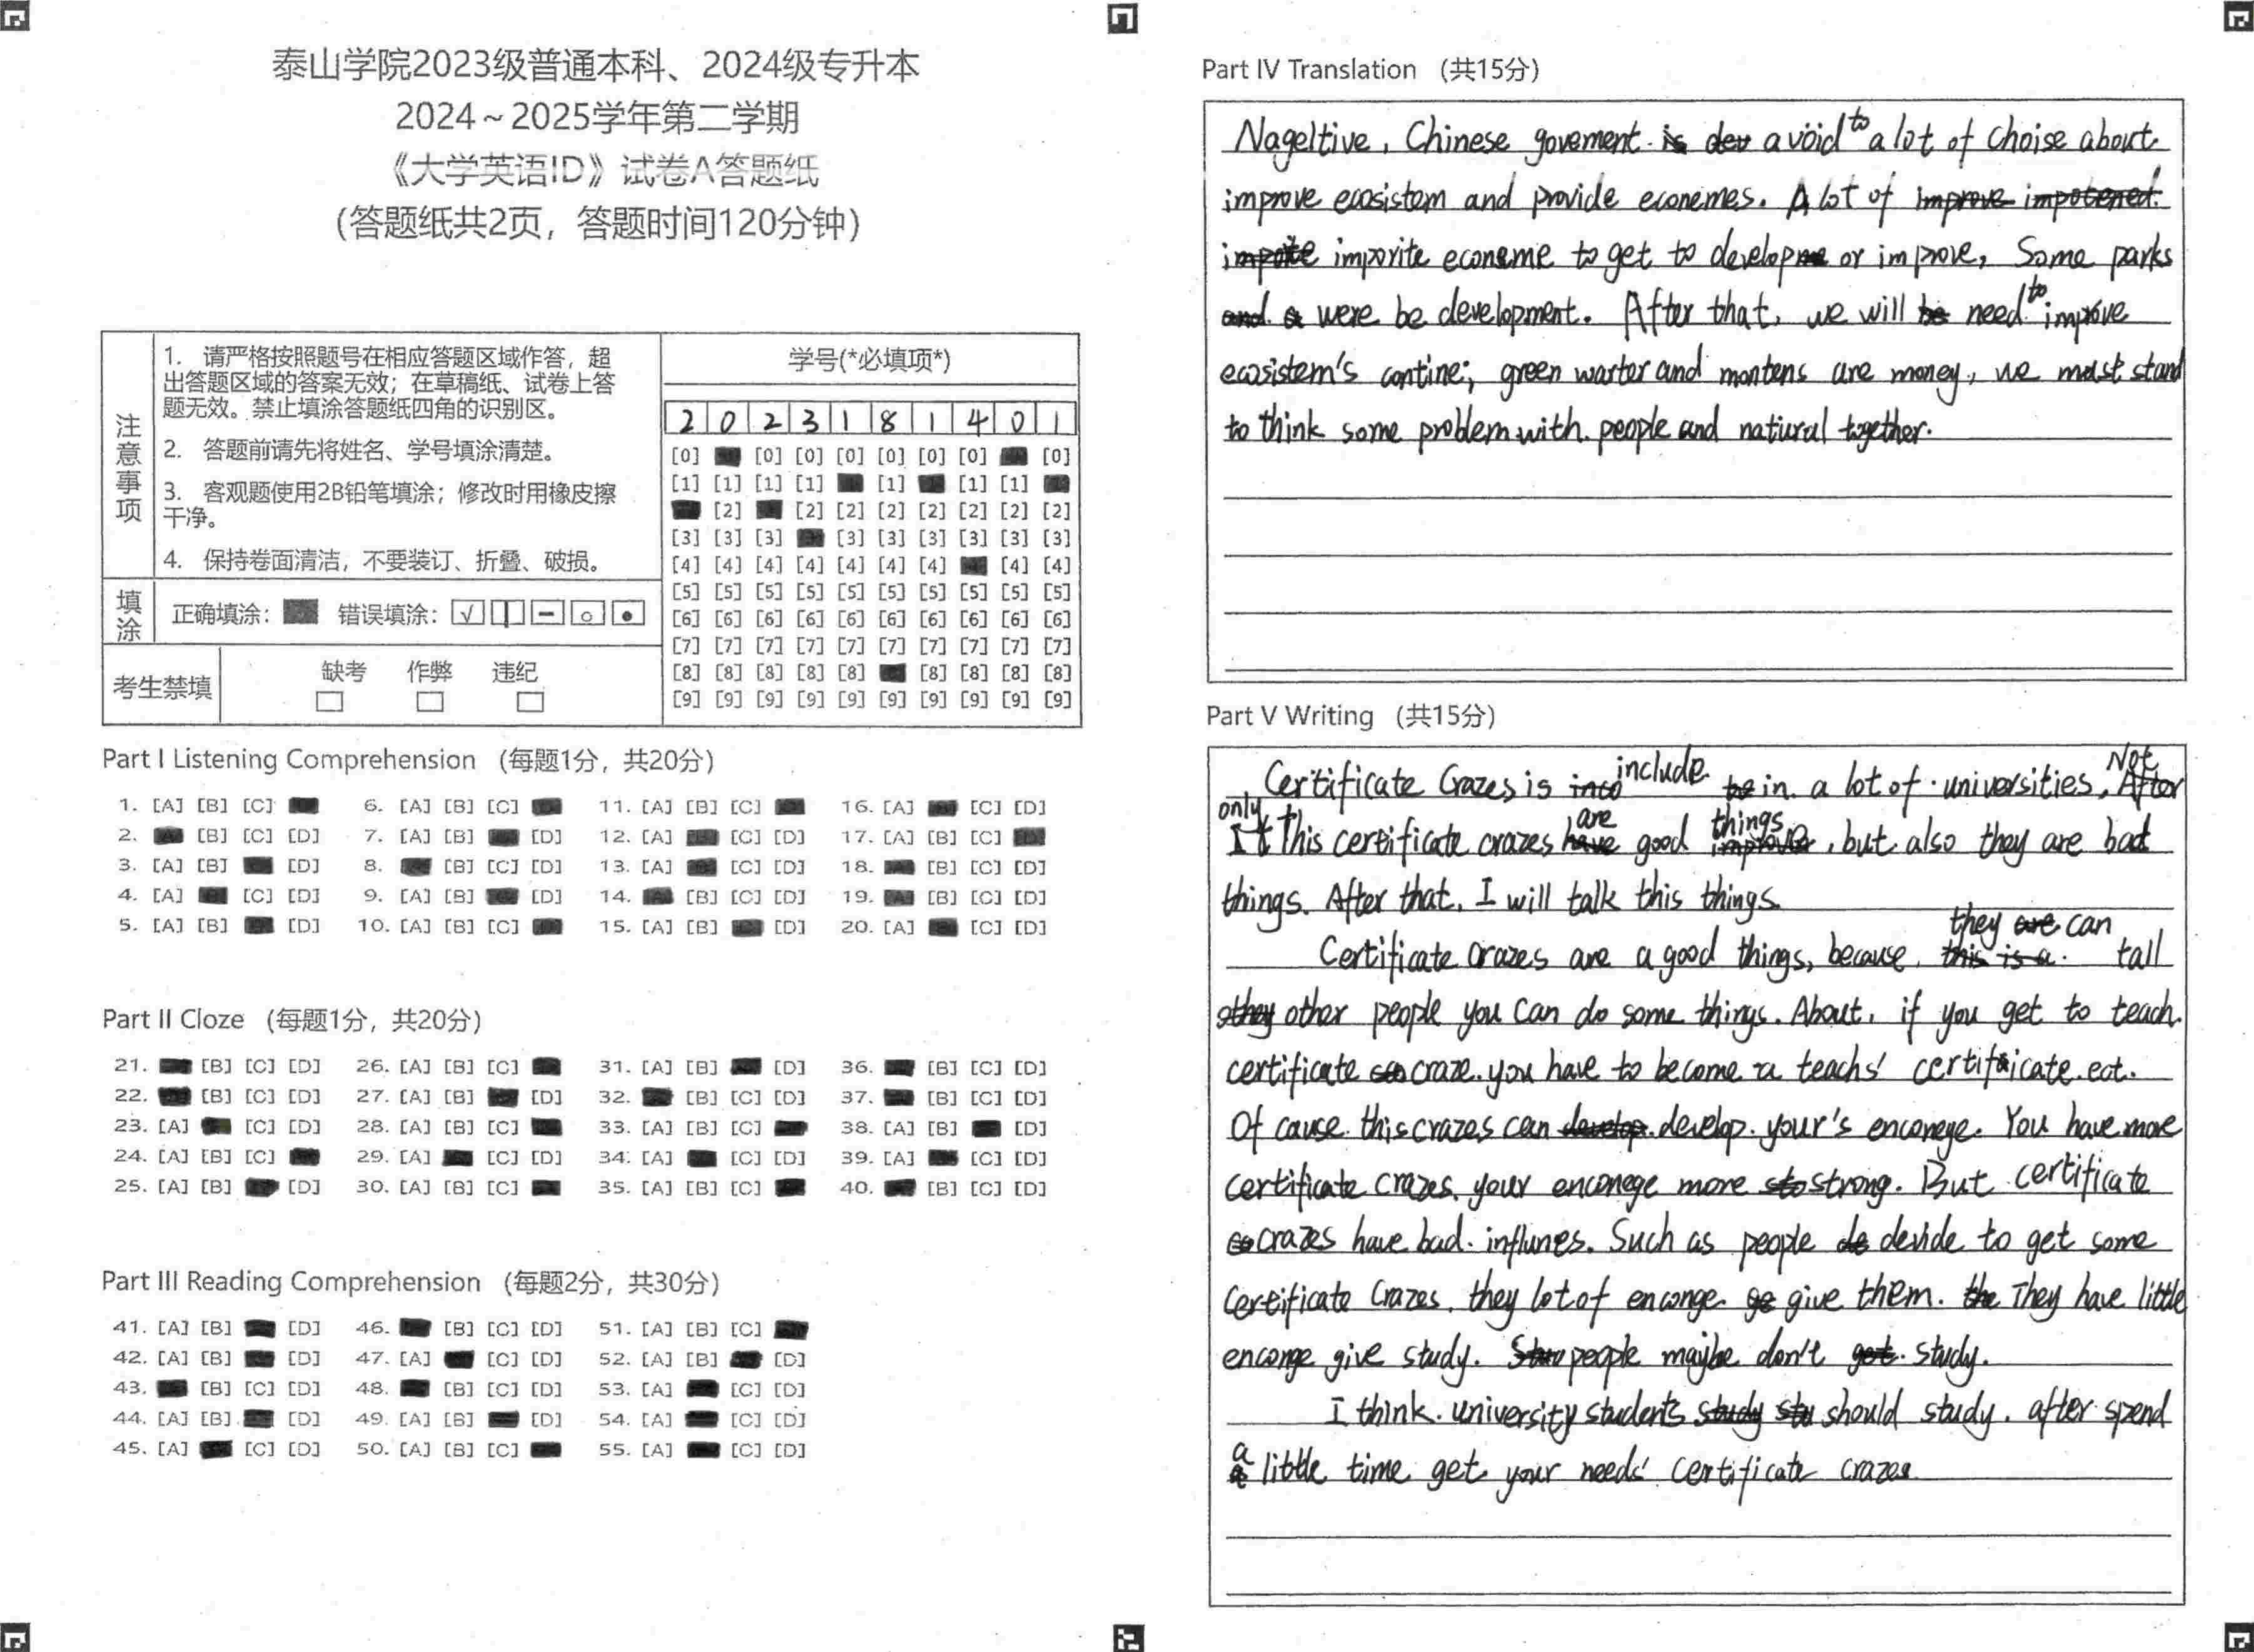 泰山学院2023级普通本科、2024级专升本
2024~2025学年第二学期
《大学英语ID》试卷A答题纸
(答题纸共2页，答题时间120分钟)
注意事项
1. 请严格按照题号在相应答题区域作答，超
出答题区域的答案无效；在草稿纸、试卷上答
题无效。禁止填涂答题纸四角的识别区。
2. 答题前请先将姓名、学号填涂清楚。
3. 客观题使用2B铅笔填涂；修改时用橡皮擦
干净。
4. 保持卷面清洁，不要装订、折叠、破损。
填涂
正确填涂： 错误填涂：
考生禁填
缺考 作弊 违纪
学号(*必填项*)
2 0 2 3 1 8 1 4 0 1
[0] [0] [0] [0] [0] [0] [0] [0]
[1] [1] [1] [1] [1] [1] [1]
[2] [2] [2] [2] [2] [2] [2] [2]
[3] [3] [3] [3] [3] [3] [3] [3] [3]
[4] [4] [4] [4] [4] [4] [4] [4] [4]
[5] [5] [5] [5] [5] [5] [5] [5] [5] [5]
[6] [6] [6] [6] [6] [6] [6] [6] [6] [6]
[7] [7] [7] [7] [7] [7] [7] [7] [7] [7]
[8] [8] [8] [8] [8] [8] [8] [8] [8]
[9] [9] [9] [9] [9] [9] [9] [9] [9] [9]
Part I Listening Comprehension (每题1分，共20分)
1. [A] [B] [C] 6. [A] [B] [C] 11. [A] [B] [C] 16. [A] [C] [D]
2. [B] [C] [D] 7. [A] [B] [D] 12. [A] [C] [D] 17. [A] [B] [C]
3. [A] [B] [D] 8. [B] [C] [D] 13. [A] [C] [D] 18. [B] [C] [D]
4. [A] [C] [D] 9. [A] [B] [D] 14. [B] [C] [D] 19. [B] [C] [D]
5. [A] [B] [D] 10. [A] [B] [C] 15. [A] [B] [D] 20. [A] [C] [D]
Part II Cloze (每题1分，共20分)
21. [B] [C] [D] 26. [A] [B] [C] 31. [A] [B] [D] 36. [B] [C] [D]
22. [B] [C] [D] 27. [A] [B] [D] 32. [B] [C] [D] 37. [B] [C] [D]
23. [A] [C] [D] 28. [A] [B] [C] 33. [A] [B] [C] 38. [A] [B] [D]
24. [A] [B] [C] 29. [A] [C] [D] 34. [A] [C] [D] 39. [A] [C] [D]
25. [A] [B] [D] 30. [A] [B] [C] 35. [A] [B] [C] 40. [B] [C] [D]
Part III Reading Comprehension (每题2分，共30分)
41. [A] [B] [D] 46. [B] [C] [D] 51. [A] [B] [C]
42. [A] [B] [D] 47. [A] [C] [D] 52. [A] [B] [D]
43. [B] [C] [D] 48. [B] [C] [D] 53. [A] [C] [D]
44. [A] [B] [D] 49. [A] [B] [D] 54. [A] [C] [D]
45. [A] [C] [D] 50. [A] [B] [C] 55. [A] [C] [D]
Part IV Translation (共15分)
Nageltive, Chinese govement a void to a lot of choise about
improve ecosistem and provide econemes. A lot of
imporite econeme to get to develop or improve, Some parks
were be development. After that, we will need to improve
ecosistem's contine; green warter and montens are money, we must stand
to think some problem with people and natiural together.
Part V Writing (共15分)
Certificate Crazes is include in a lot of universities. Not
only this certificate crazes are good things, but also they are bad
things. After that, I will talk this things.
Certificate crazes are a good things, because, they can tall
other people you can do some things. About, if you get to teach
certificate craze. you have to become a teachs' certificate. ect.
Of cause this crazes can develop your's enconege. You have more
certificate crazes, your enconege more strong. But certificate
crazes have bad influnes. Such as people devide to get some
certificate Crazes, they lot of enconge give them. They have little
enconge give study. people maybe don't study.
I think university students should study. after spend
a little time get your needs' certificate crazes